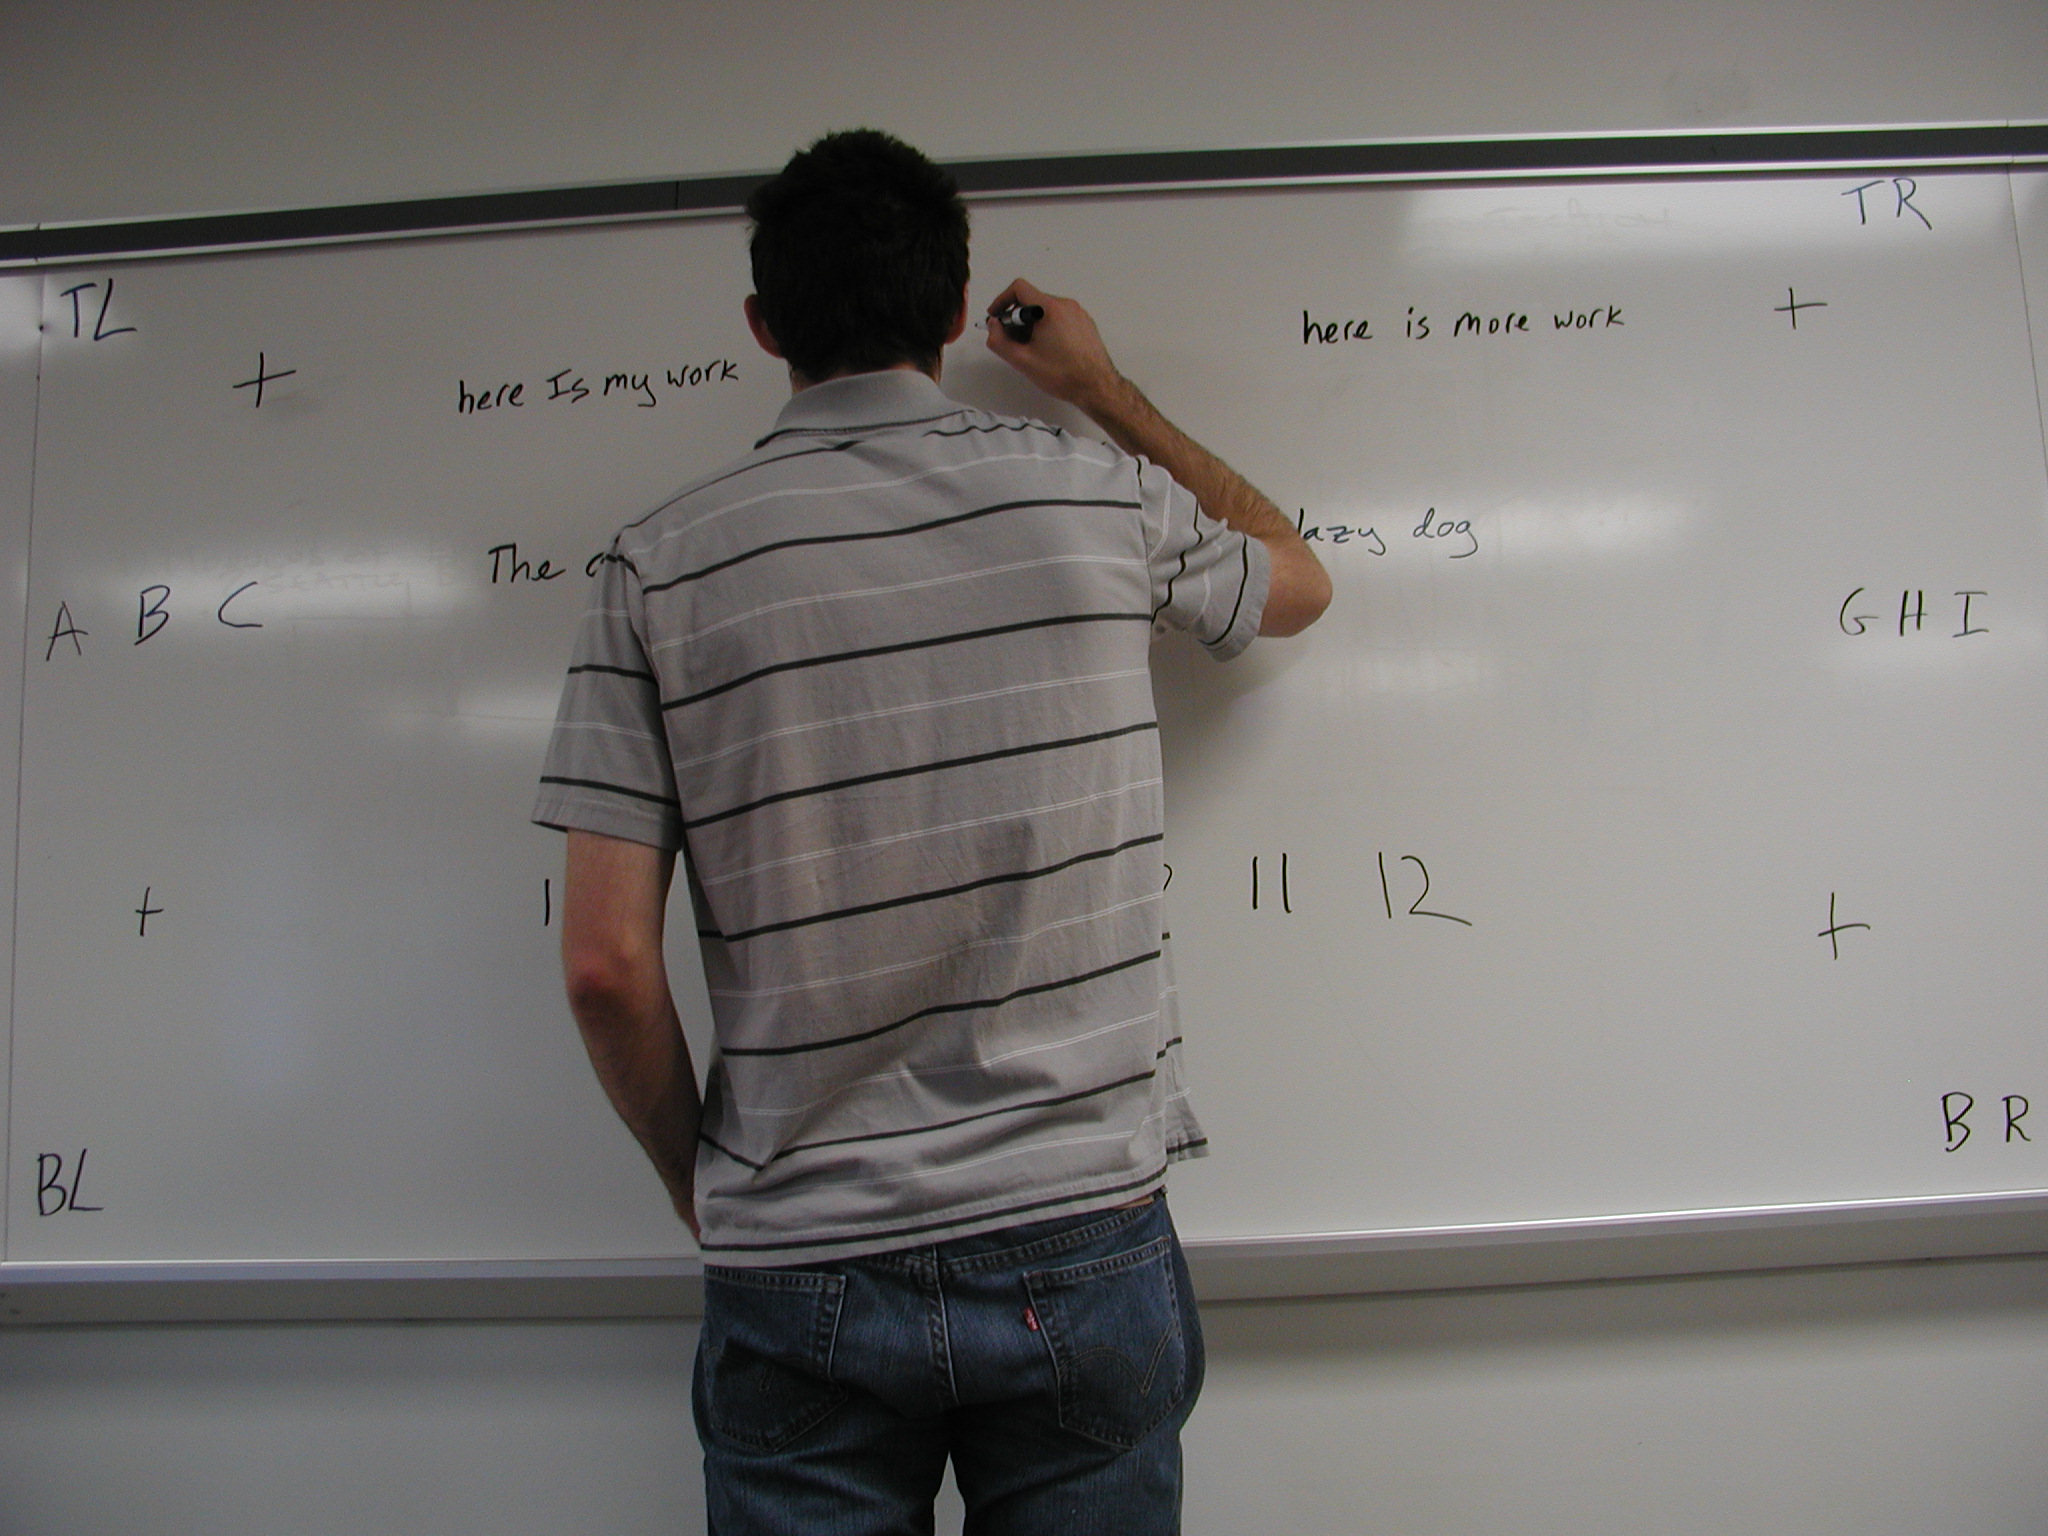 TR
TL
+ here Is my work here is more work +
The lazy dog
A B C G H I
+ 1 11 12 +
BL BR